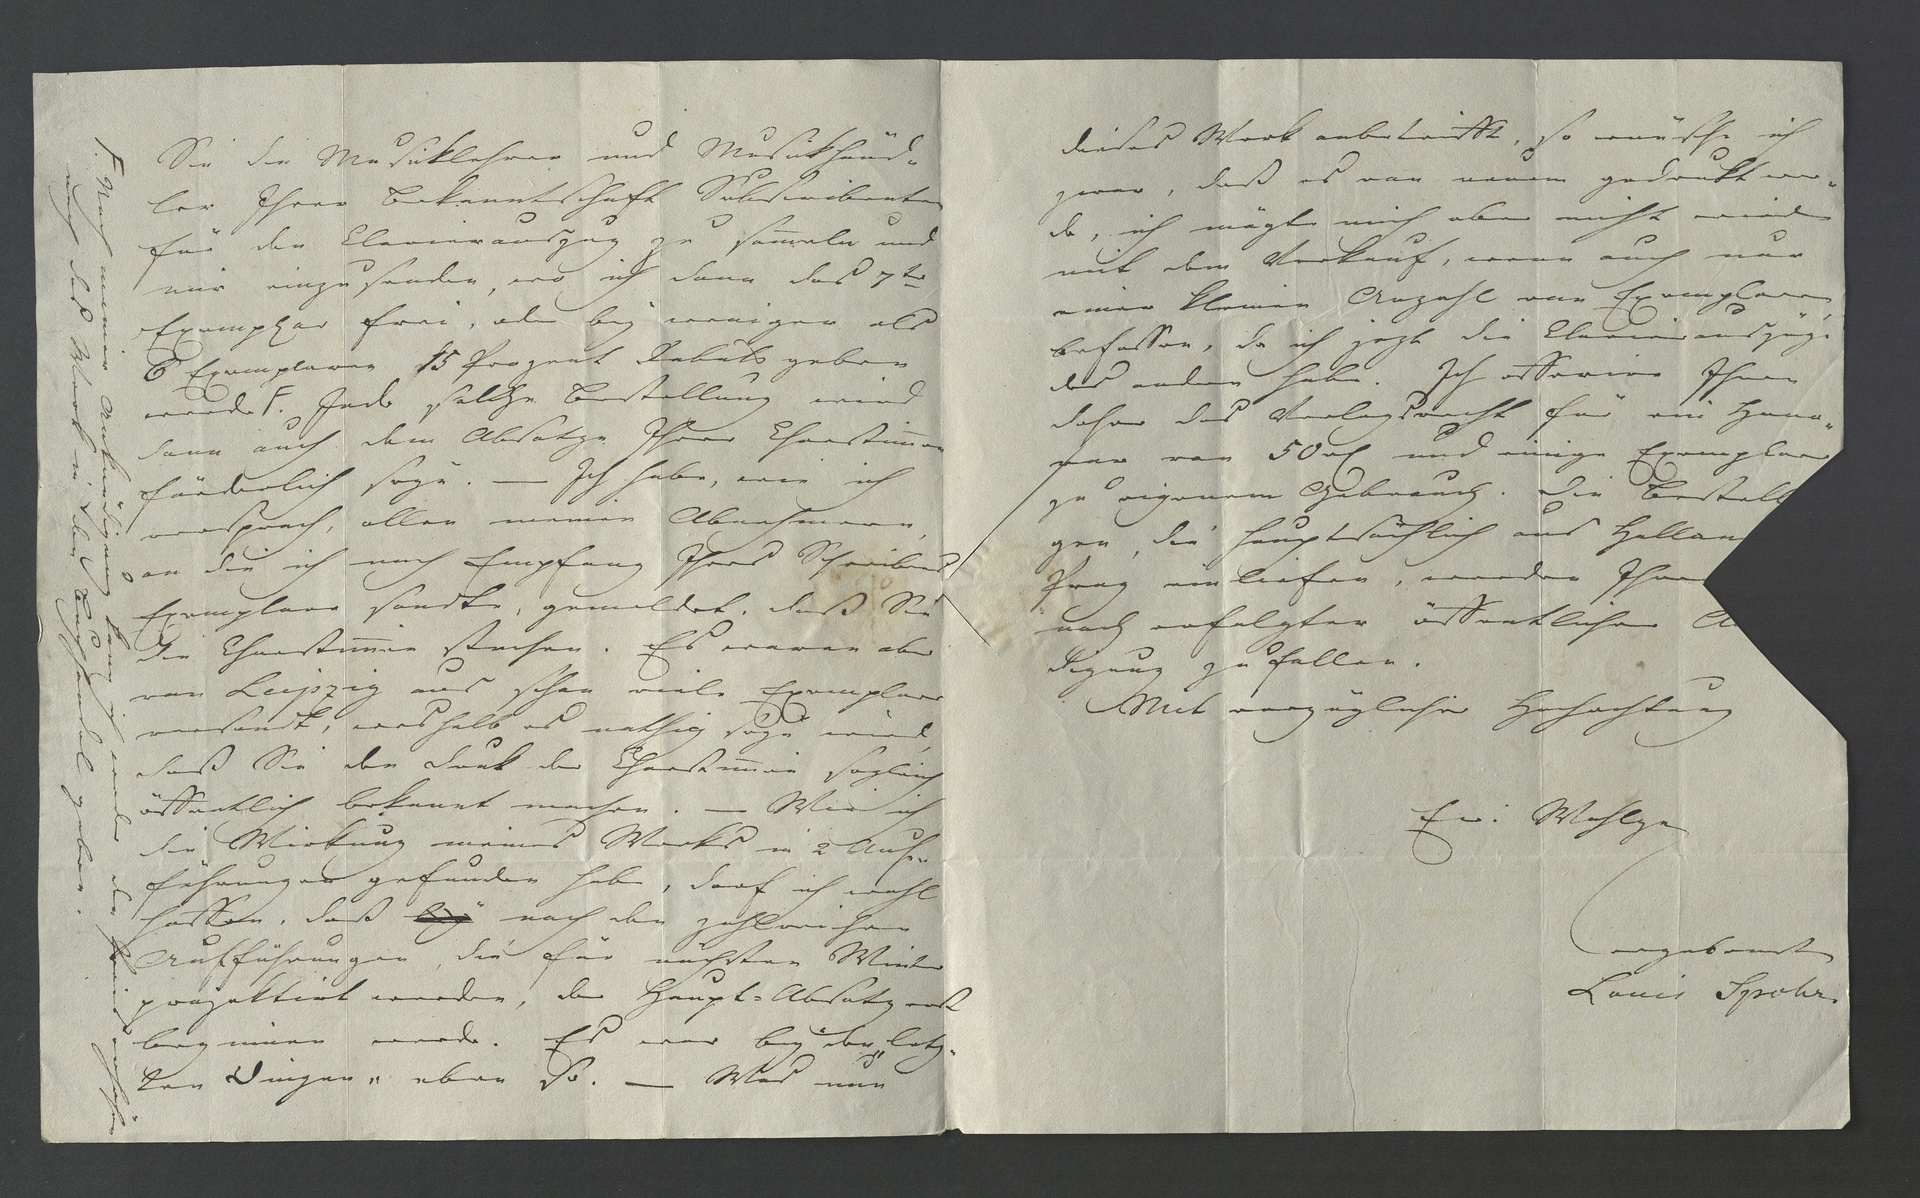 Sie die Musiklehrer und Musikhänd-
ler Ihrer Bekanntschaft Subscribenten
für den Clavierauszug zu sammeln und
mir einzusenden, wo ich dann das 7te
Exemplar frei, oder bey weniger als
6 Exemplaren 15 Prozent Rabatt geben
werde F. Jede solche Bestellung wird
dann auch dem Absatze Ihrer Chorstimmen
förderlich seyn. — Ich habe, wie ich
versprach, allen meinen Abnehmern,
an die ich nach Empfang Ihres Schreibens
Exemplare sandte, gemeldet, daß Sie
die Chorstimmen stechen. Es waren aber
von Leipzig aus schon viele Exemplare
versandt, weshalb es nöthig seyn wird,
daß Sie den Druck der Chorstimmen sogleich
öffentlich bekannt machen. — Wie ich
die Wirkung meines Werks in 2 Auf-
führungen gefunden habe, darf ich wohl
hoffen, daß nach den zahlreichen
Aufführungen, die für nächsten Winter
projektirt werden, der Haupt-Absatz erst
beginnen werde. Es war bey den „letz-
ten Dingen" eben so. — Was nun
F. Nach meiner Ankündigung kann ich weder den Preis erhöhen
noch das Werk in den Buchhandel geben.
dieses Werk anbetrifft, so wünsche ich
zwar, daß es von neuem gedruckt wer-
de, ich mögte mich aber nicht wieder
mit dem Verkauf, wenn auch nur
einer kleinen Anzahl von Exemplaren
befassen, da ich jezt die Clavierauszüge
des andern habe. Ich offerire Ihnen
daher das Verlagsrecht für ein Hono-
rar von 50 rh und einige Exemplare
zu eigenem Gebrauch. Die Bestell
gen, die hauptsächlich aus Hollan
Prag einliefen, werden Ihne
nach erfolgter öffentlicher A
digung zufallen.
Mit vorzüglicher Hochachtung
Ew. Wohlge
ergebenst
Louis Spohr.